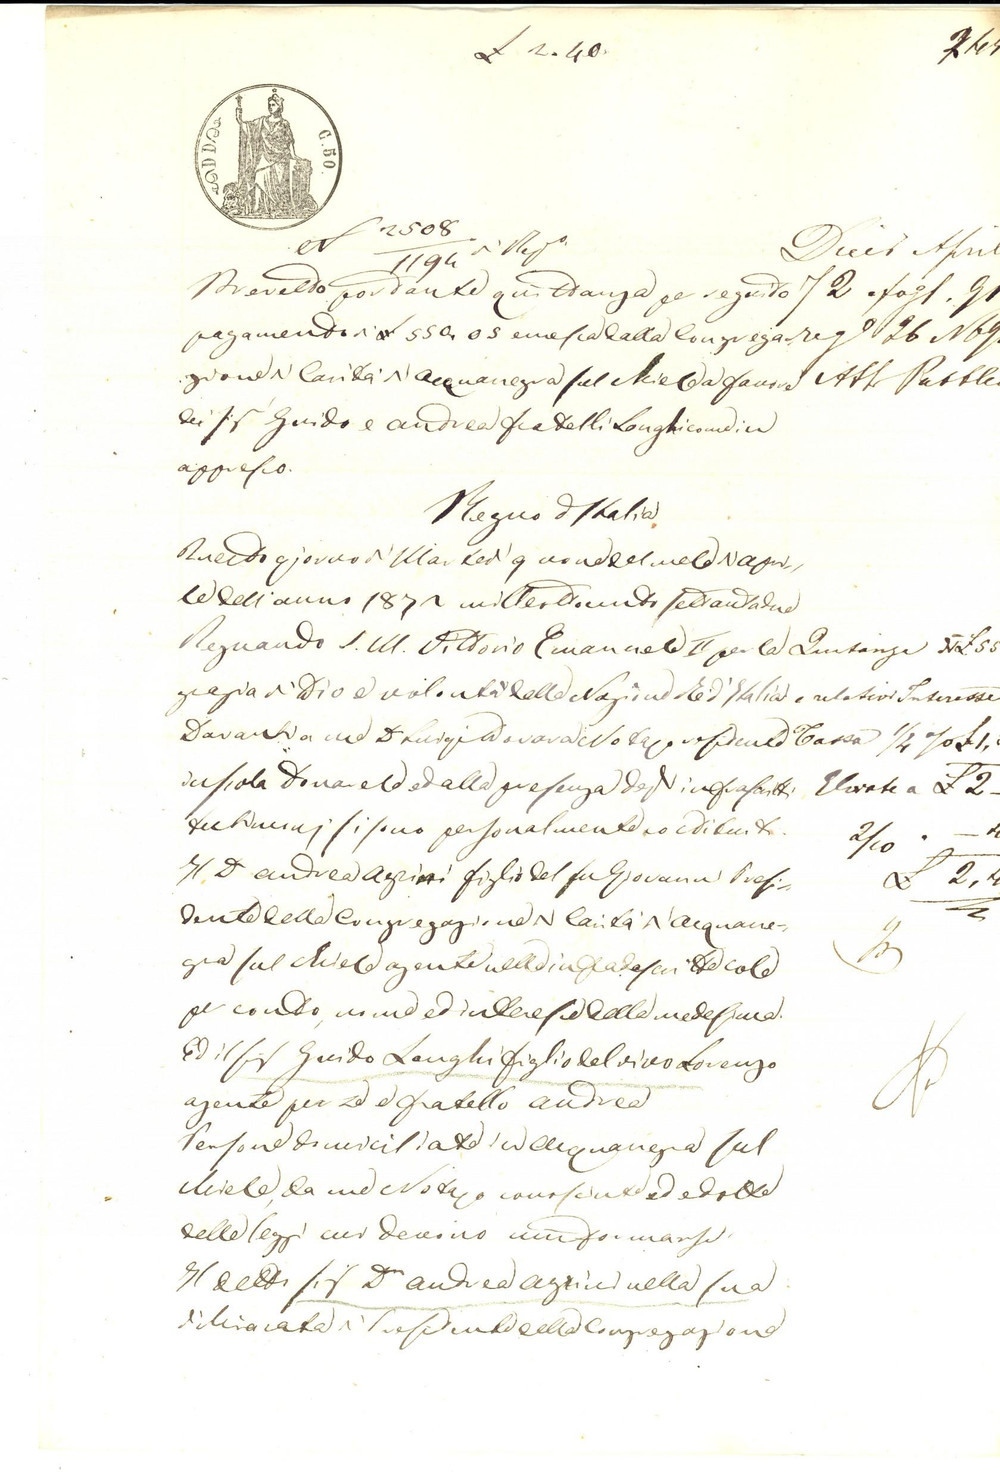 £ 2.40.
C. 50.
N 2508
1194 di Rep°
Dieci April
Brevetto portante quittanza per seguito
pagamento di £ 550.05 emessa dalla Congrega-
zione di Carità di Acquanegra sul Chiese a favore
dei sigi Guido e Andrea fratelli Longhi come in
appresso.
72 fogl. 91
reg°
Atti Pubbli
Regno d'Italia
Questo giorno di Martedì 9 nove del mese di Apri-
le dell'anno 1872 mille ottocento settantadue
Regnando S. M. Vittorio Emanuele II per la
grazia di Dio e volontà della Nazione Re d'Italia
Davanti a me Dr Luigi Notajo residente
in Isola Dovarese ed alla presenza degli infrascritti
testimonj si sono personalmente costituiti.
Il Dr Andrea Azzini figlio del fu Giovanni Presi-
dente della Congregazione di Carità di Acquane-
gra sul Chiese agente nella infradescritte cose
per conto, nome ed interesse della medesima.
Ed il sigr Guido Longhi figlio del vivo Lorenzo
agente per se e fratello Andrea
Persone domiciliate in Acquanegra sul
Chiese, da me Notajo conosciute ed edotte
delle leggi cui devono uniformarsi.
Il detto sigr Dr Andrea Azzini nella sua
dichiarata di Presidente della Congregazione
Quitanza £ 55
e relativi Interesse
Tassa 1/4 % £ 1,
Elevate a £ 2 -
2/10 . -
£ 2,4